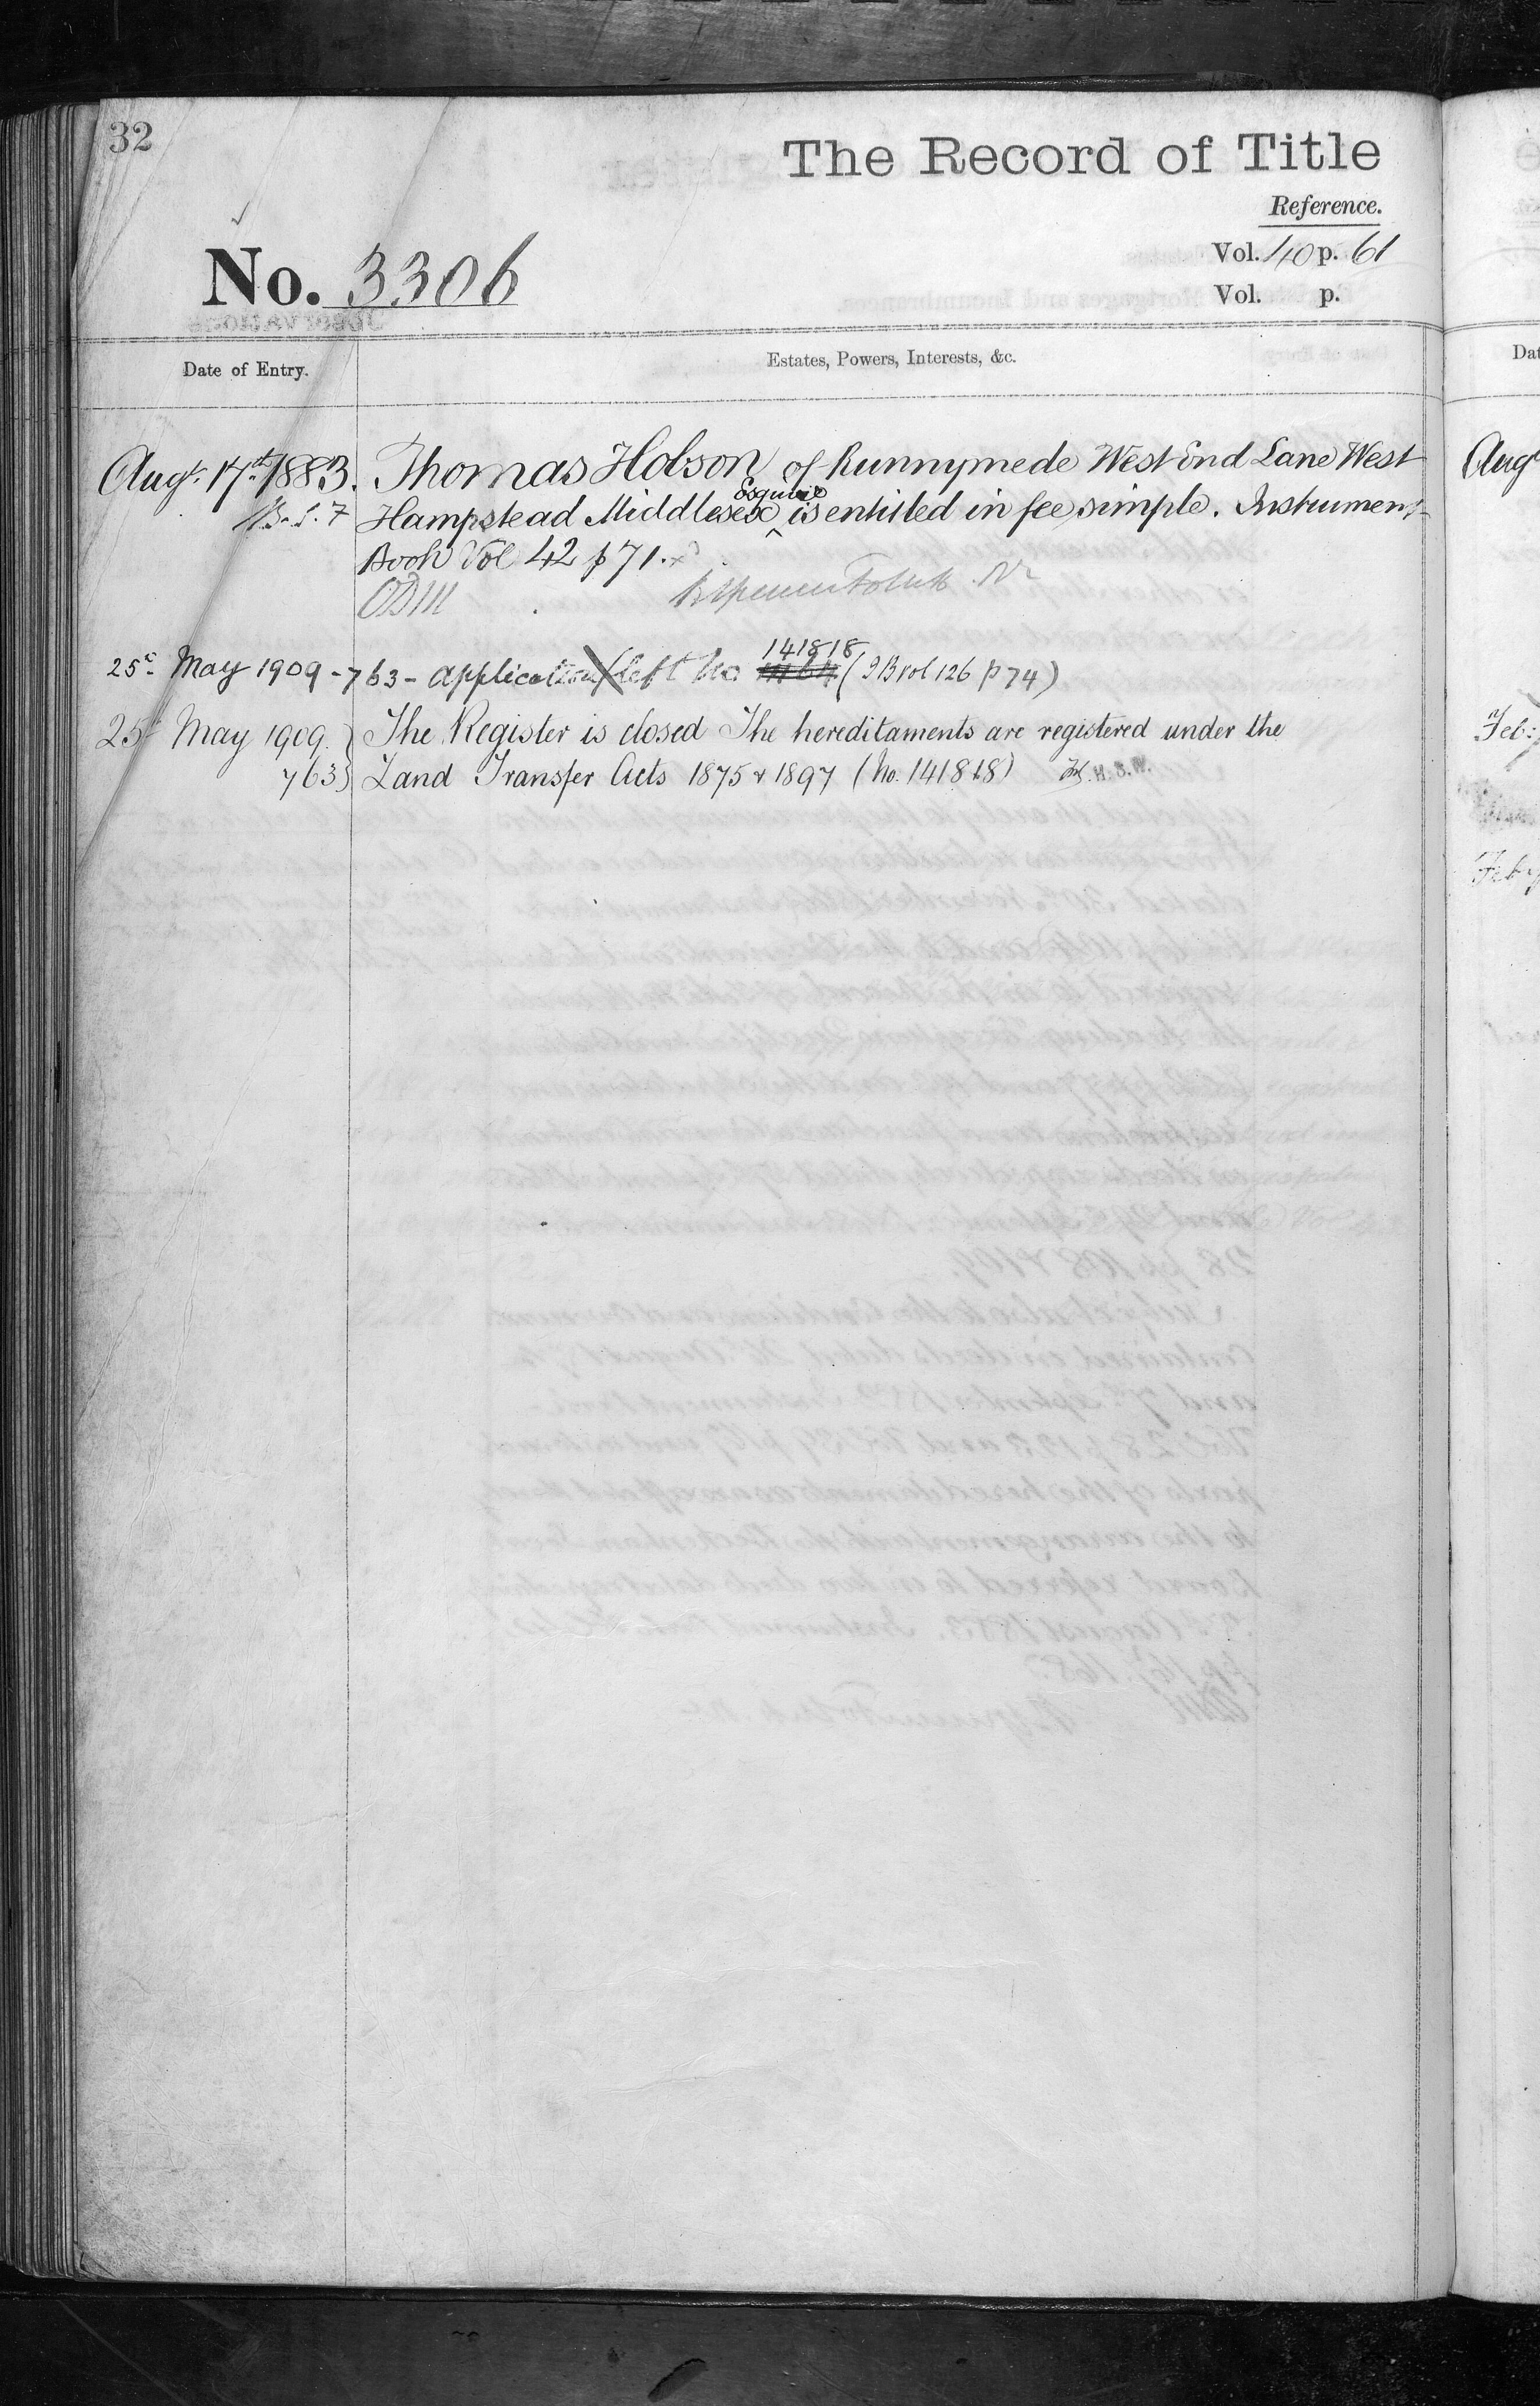 32
The Record of Title
Reference.
No. 3306
Vol. 40 p. 61
Vol. p.
Date of Entry.
Estates, Powers, Interests, &c.
Augt. 17th 1883. Thomas Hobson of Runnymede West End Lane West
Hampstead Middlesex ^ Esquire is entitled in fee simple. Instrument
Book Vol 42 p 71.
25th May 1909 - 763 - application left No 141818 (I B vol 126 p 74)
25th May 1909. } The Register is closed The hereditaments are registered under the
763 } Land Transfer Acts 1875 & 1897 (No. 141818) H.S.W.
Dat
Aug
Feb:
Feby